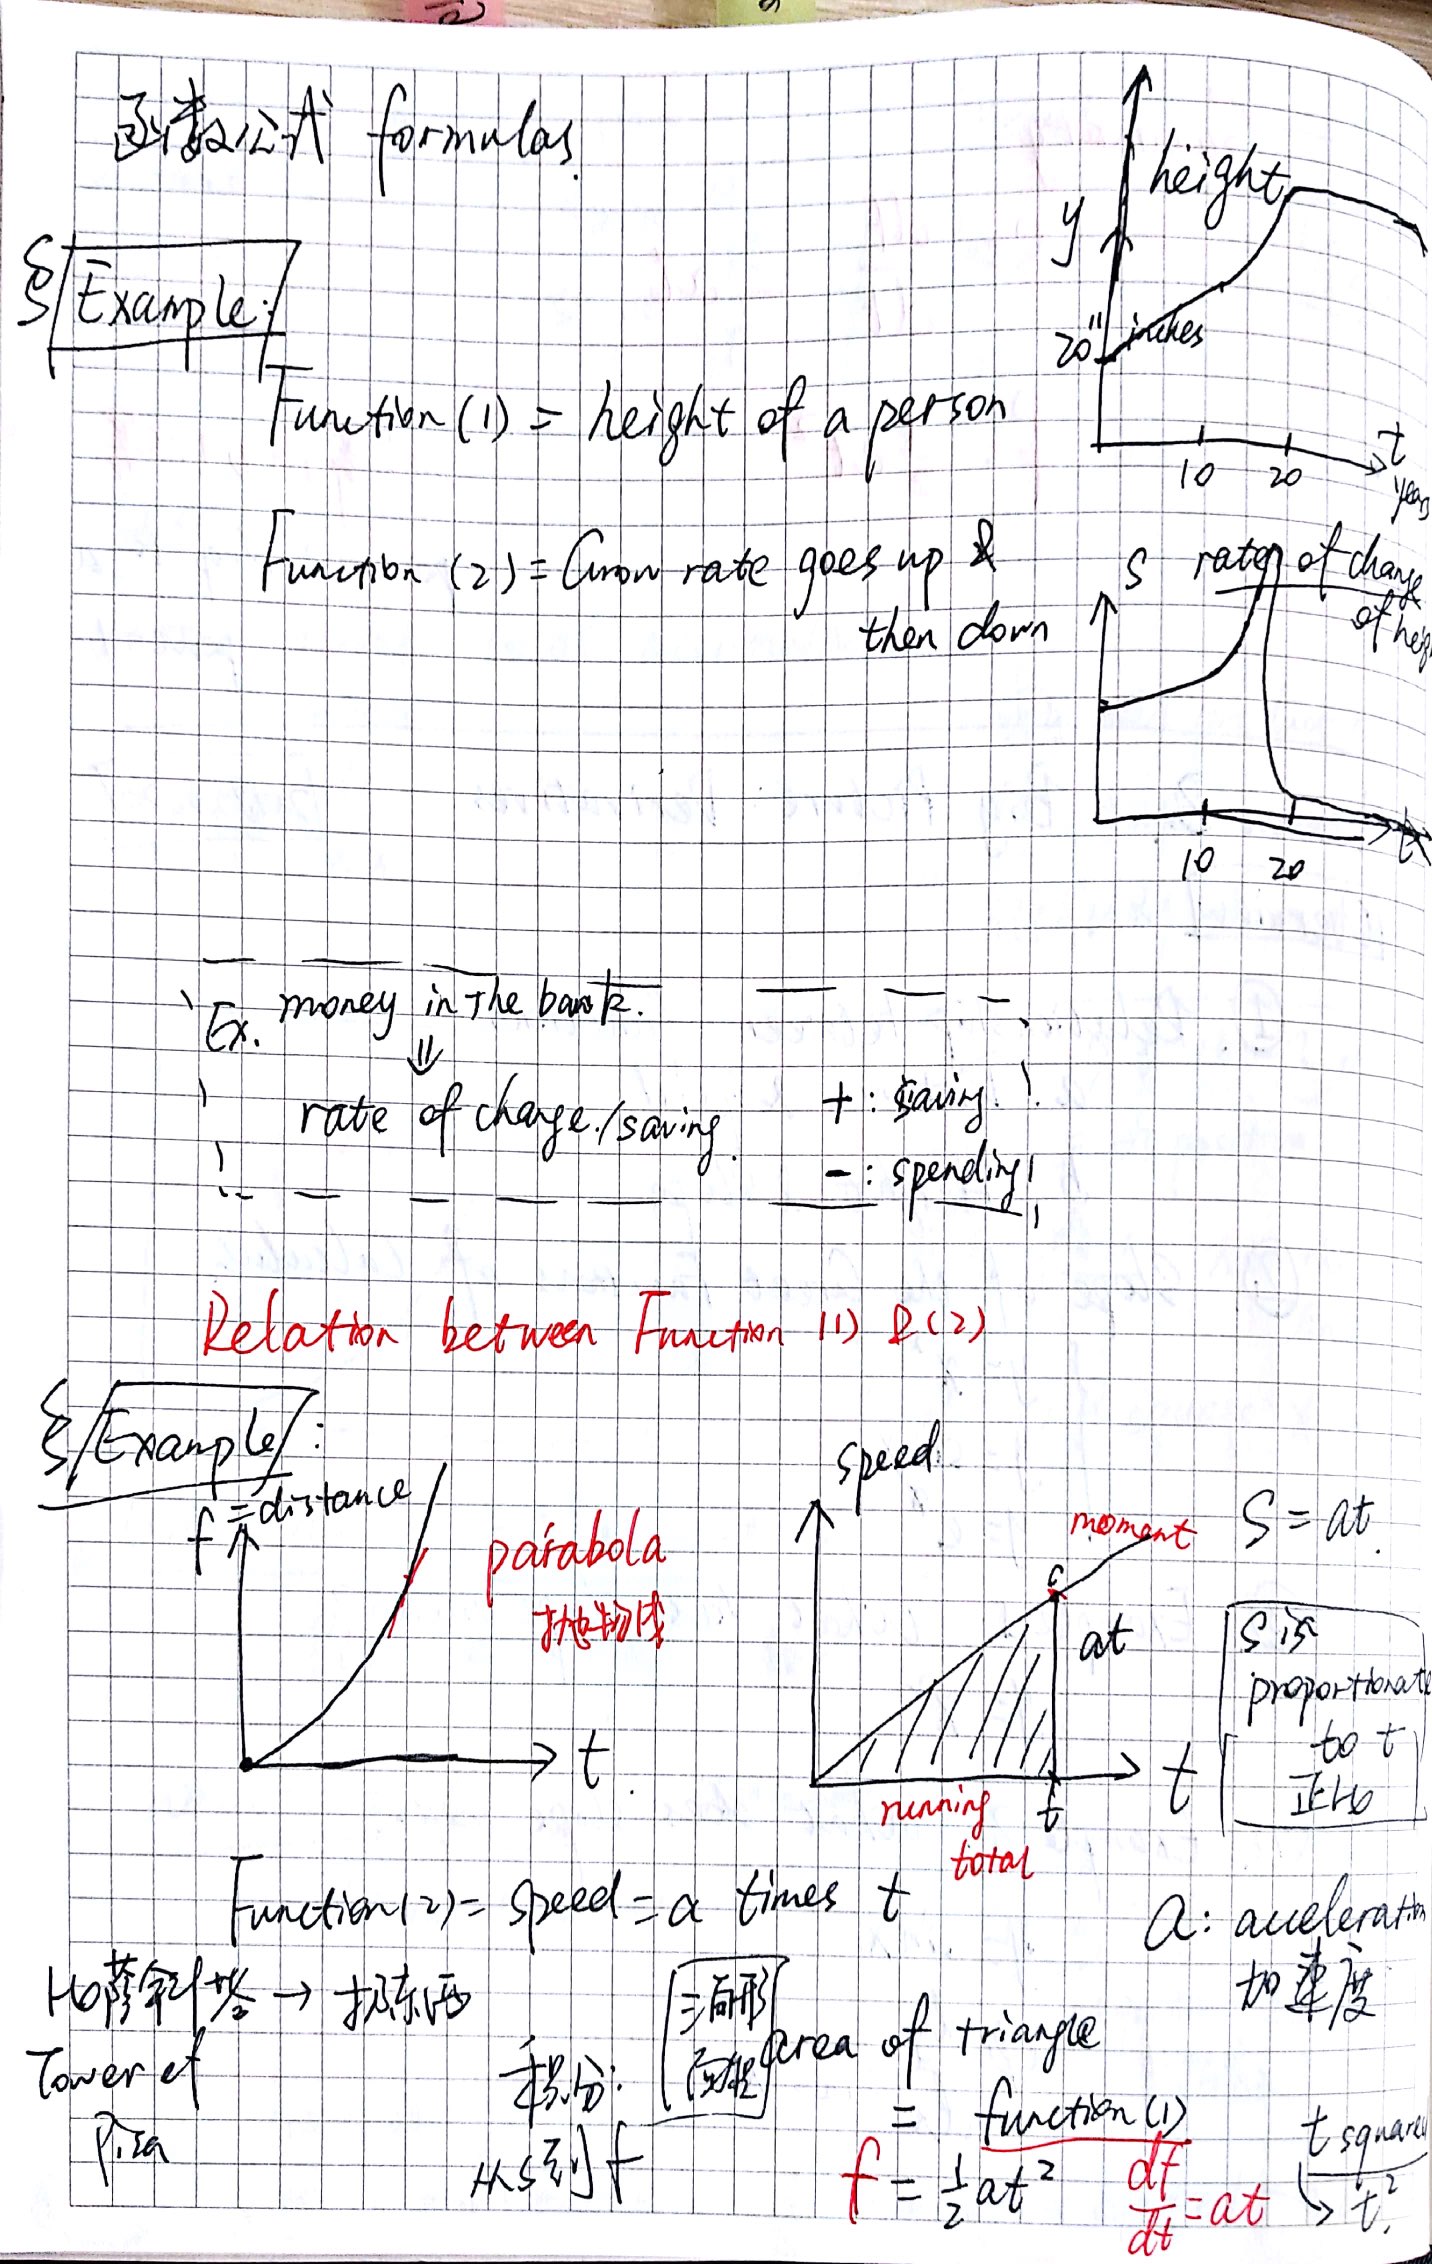 函数公式 formulas.
height
y
20" inches
10 20
t
years
Example:
Function (1) = height of a person
Function (2) = Grow rate goes up &
then down
S rate of change
of heig
10 20
t
Ex. money in the bank.
⇓
rate of change./saving.
+: saving.
-: spending
Relation between Function (1) & (2)
Example:
f = distance
parabola
抛物线
t.
speed.
moment
at
t
t
running
total
S = at.
S is
proportionate
to t
正比
Function (2) = speed = a times t
a: acceleration
加速度
比萨斜塔 → 扔东西
Tower of
Pisa
积分:
从S到f
三角形
面积
area of triangle
= function (1)
f = ½at²
df/dt = at
t squared
↳ t².